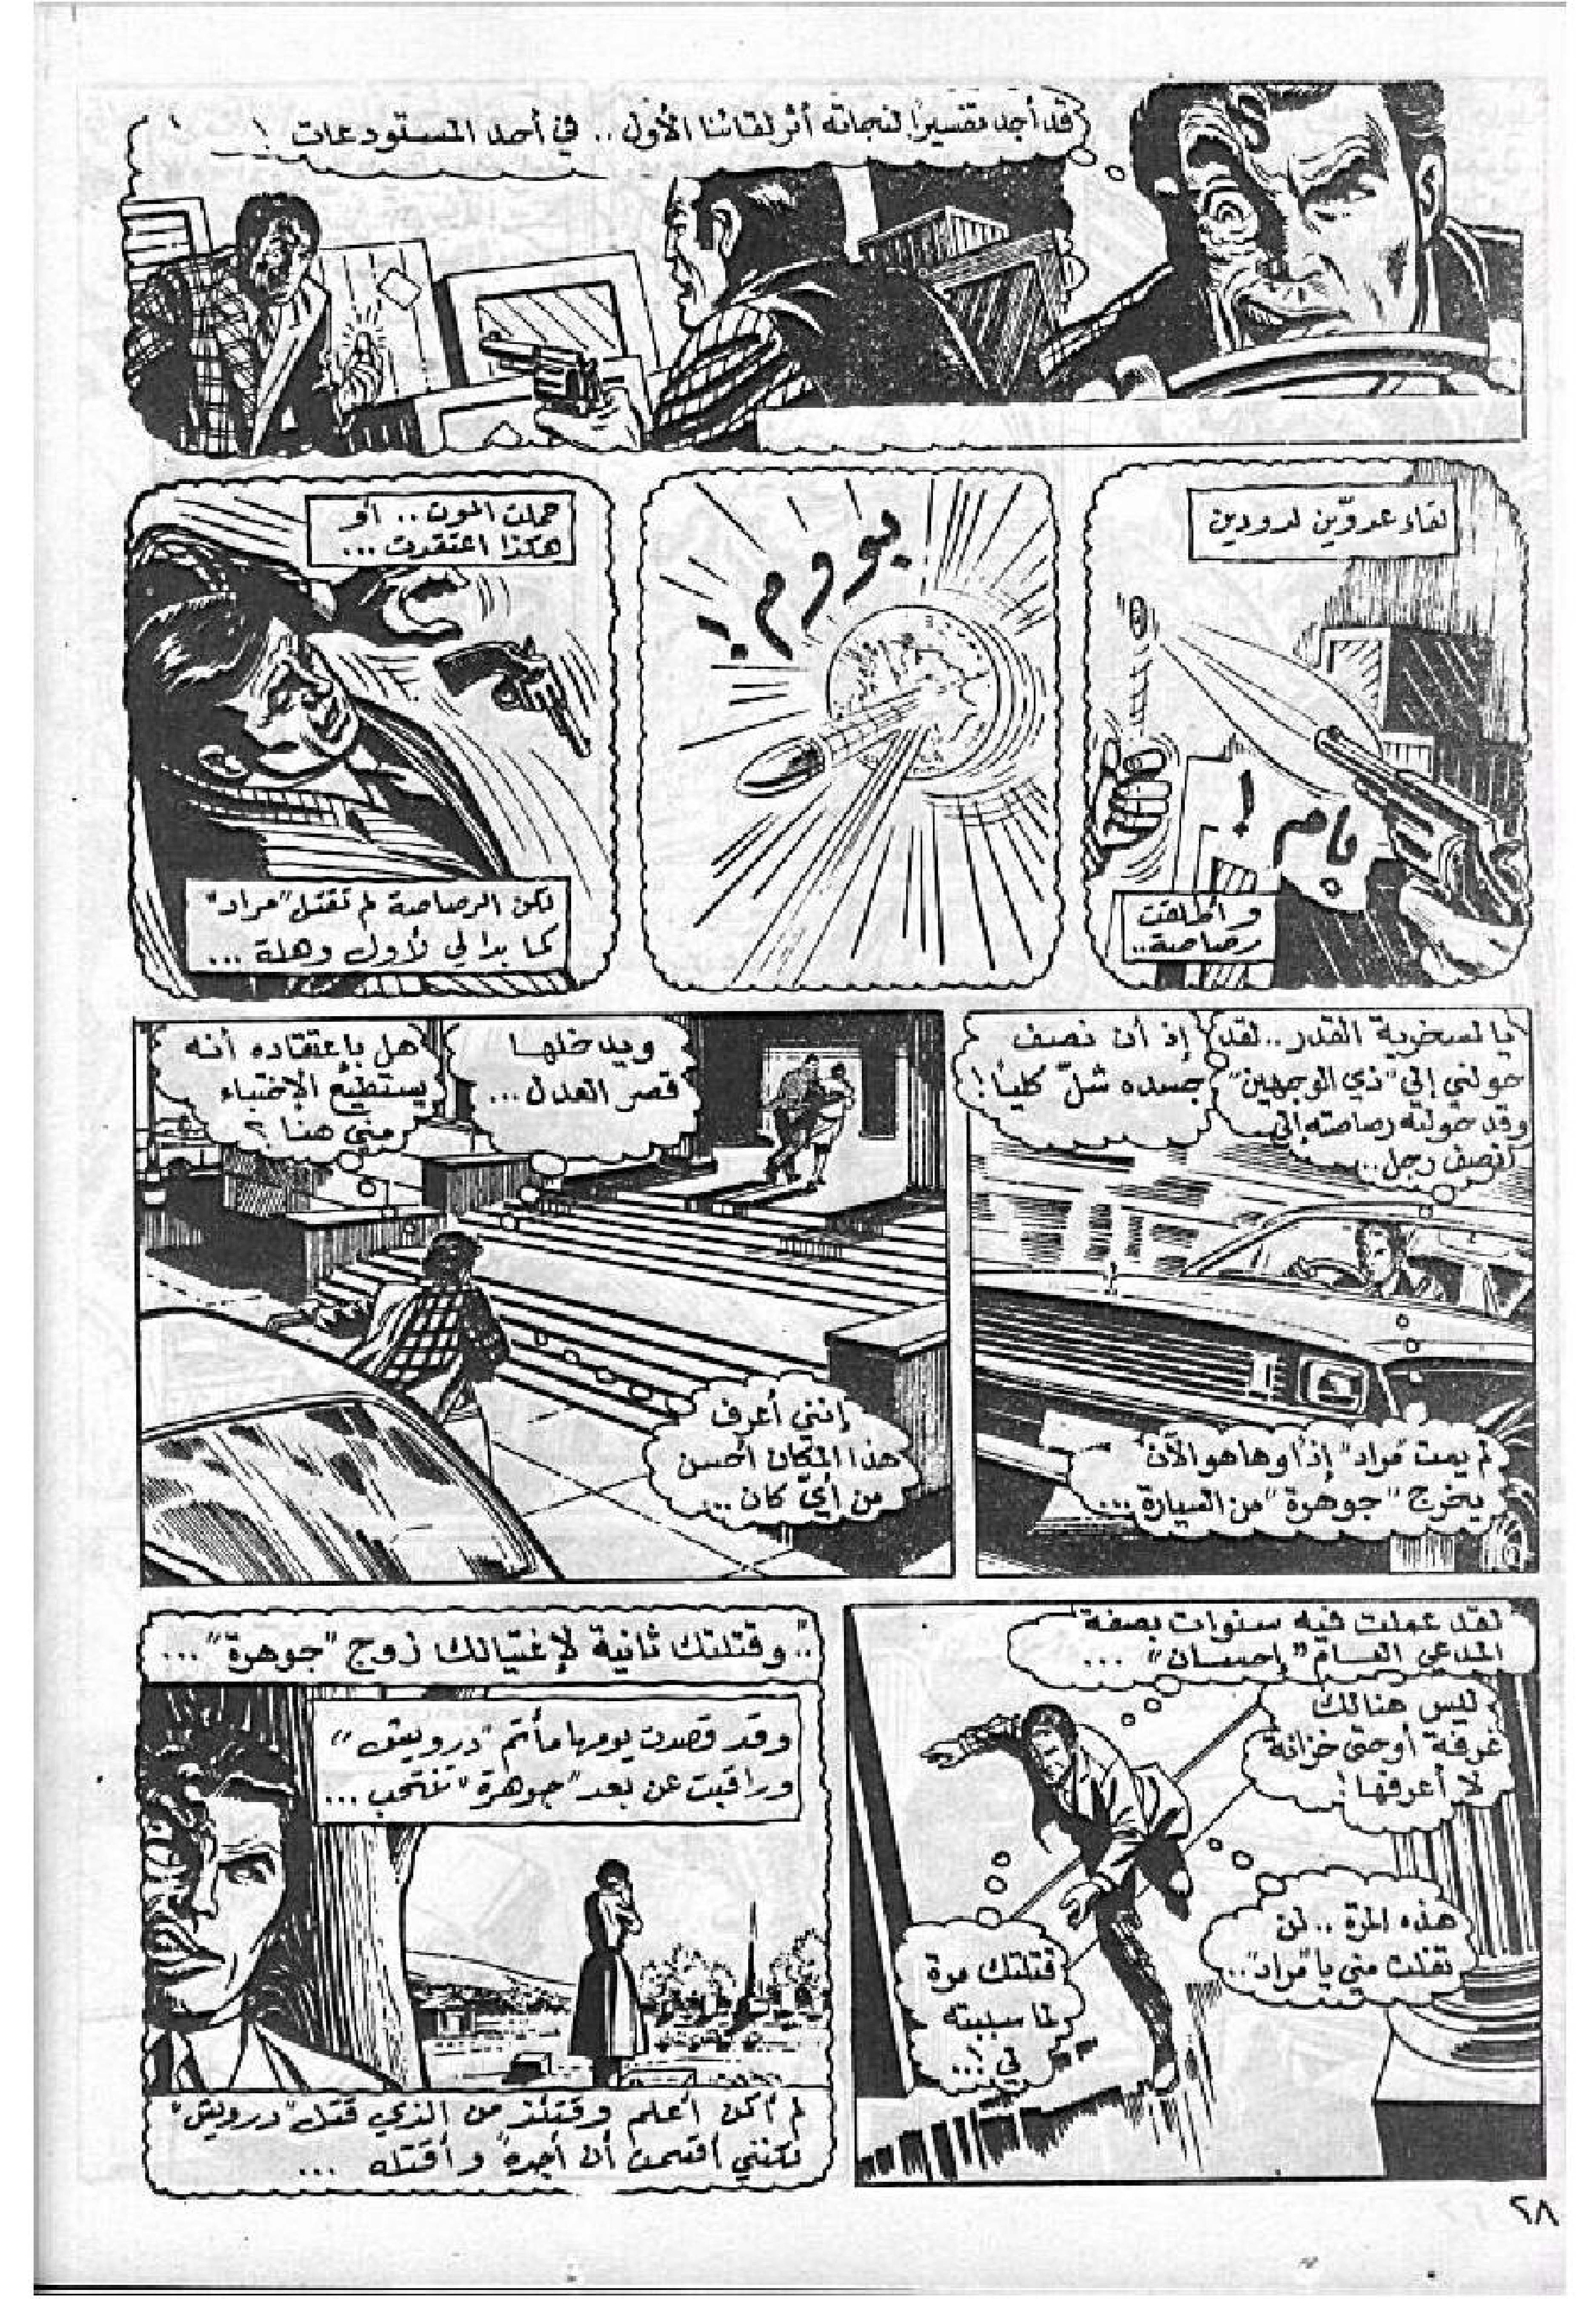 قد أجد تفسيرًا لنجاته أثر لقائنا الأول .. في أحد المستودعات !
لقاء عدوّين لدودين
بام !
وأطلقت
رصاصة..
بووم !
حملت الموت .. أو
هكذا اعتقدت ...
لكن الرصاصة لم تقتل "مراد"
كما بدا لي لأول وهلة ...
يا لسخرية القدر .. لقد
حولني إلى "ذي الوجهين"
وقد حولته رصاصته إلى
نصف رجل..
إذ أن نصف
جسده شلّ كلياً !
لم يمت "مراد" إذاً وها هو الآن
يخرج "جوهرة" من السيارة ...
ويدخلها
قصر العدل ...
هل باعتقاده أنه
يستطيع الإختباء
مني هنا ؟
إنني أعرف
هذا المكان أحسن
من أيّ كان ...
لقد عملت فيه سنوات بصفة
المدعي العام "إحسان" ...
ليس هنالك
غرفة أو حتى خزانة
لا أعرفها !
هذه المرة .. لن
تفلت مني يا "مراد" ..
قتلتك مرة
لما سببته
لي ...
.. وقتلتك ثانية لإغتيالك زوج "جوهرة" ...
وقد قصدت يومها مأتم "درويش"
وراقبت عن بعد "جوهرة" تنتحب ...
لم أكن أعلم وقتئذ من الذي قتل "درويش"
لكنني أقسمت أن أجده وأقتله ...
٢٨